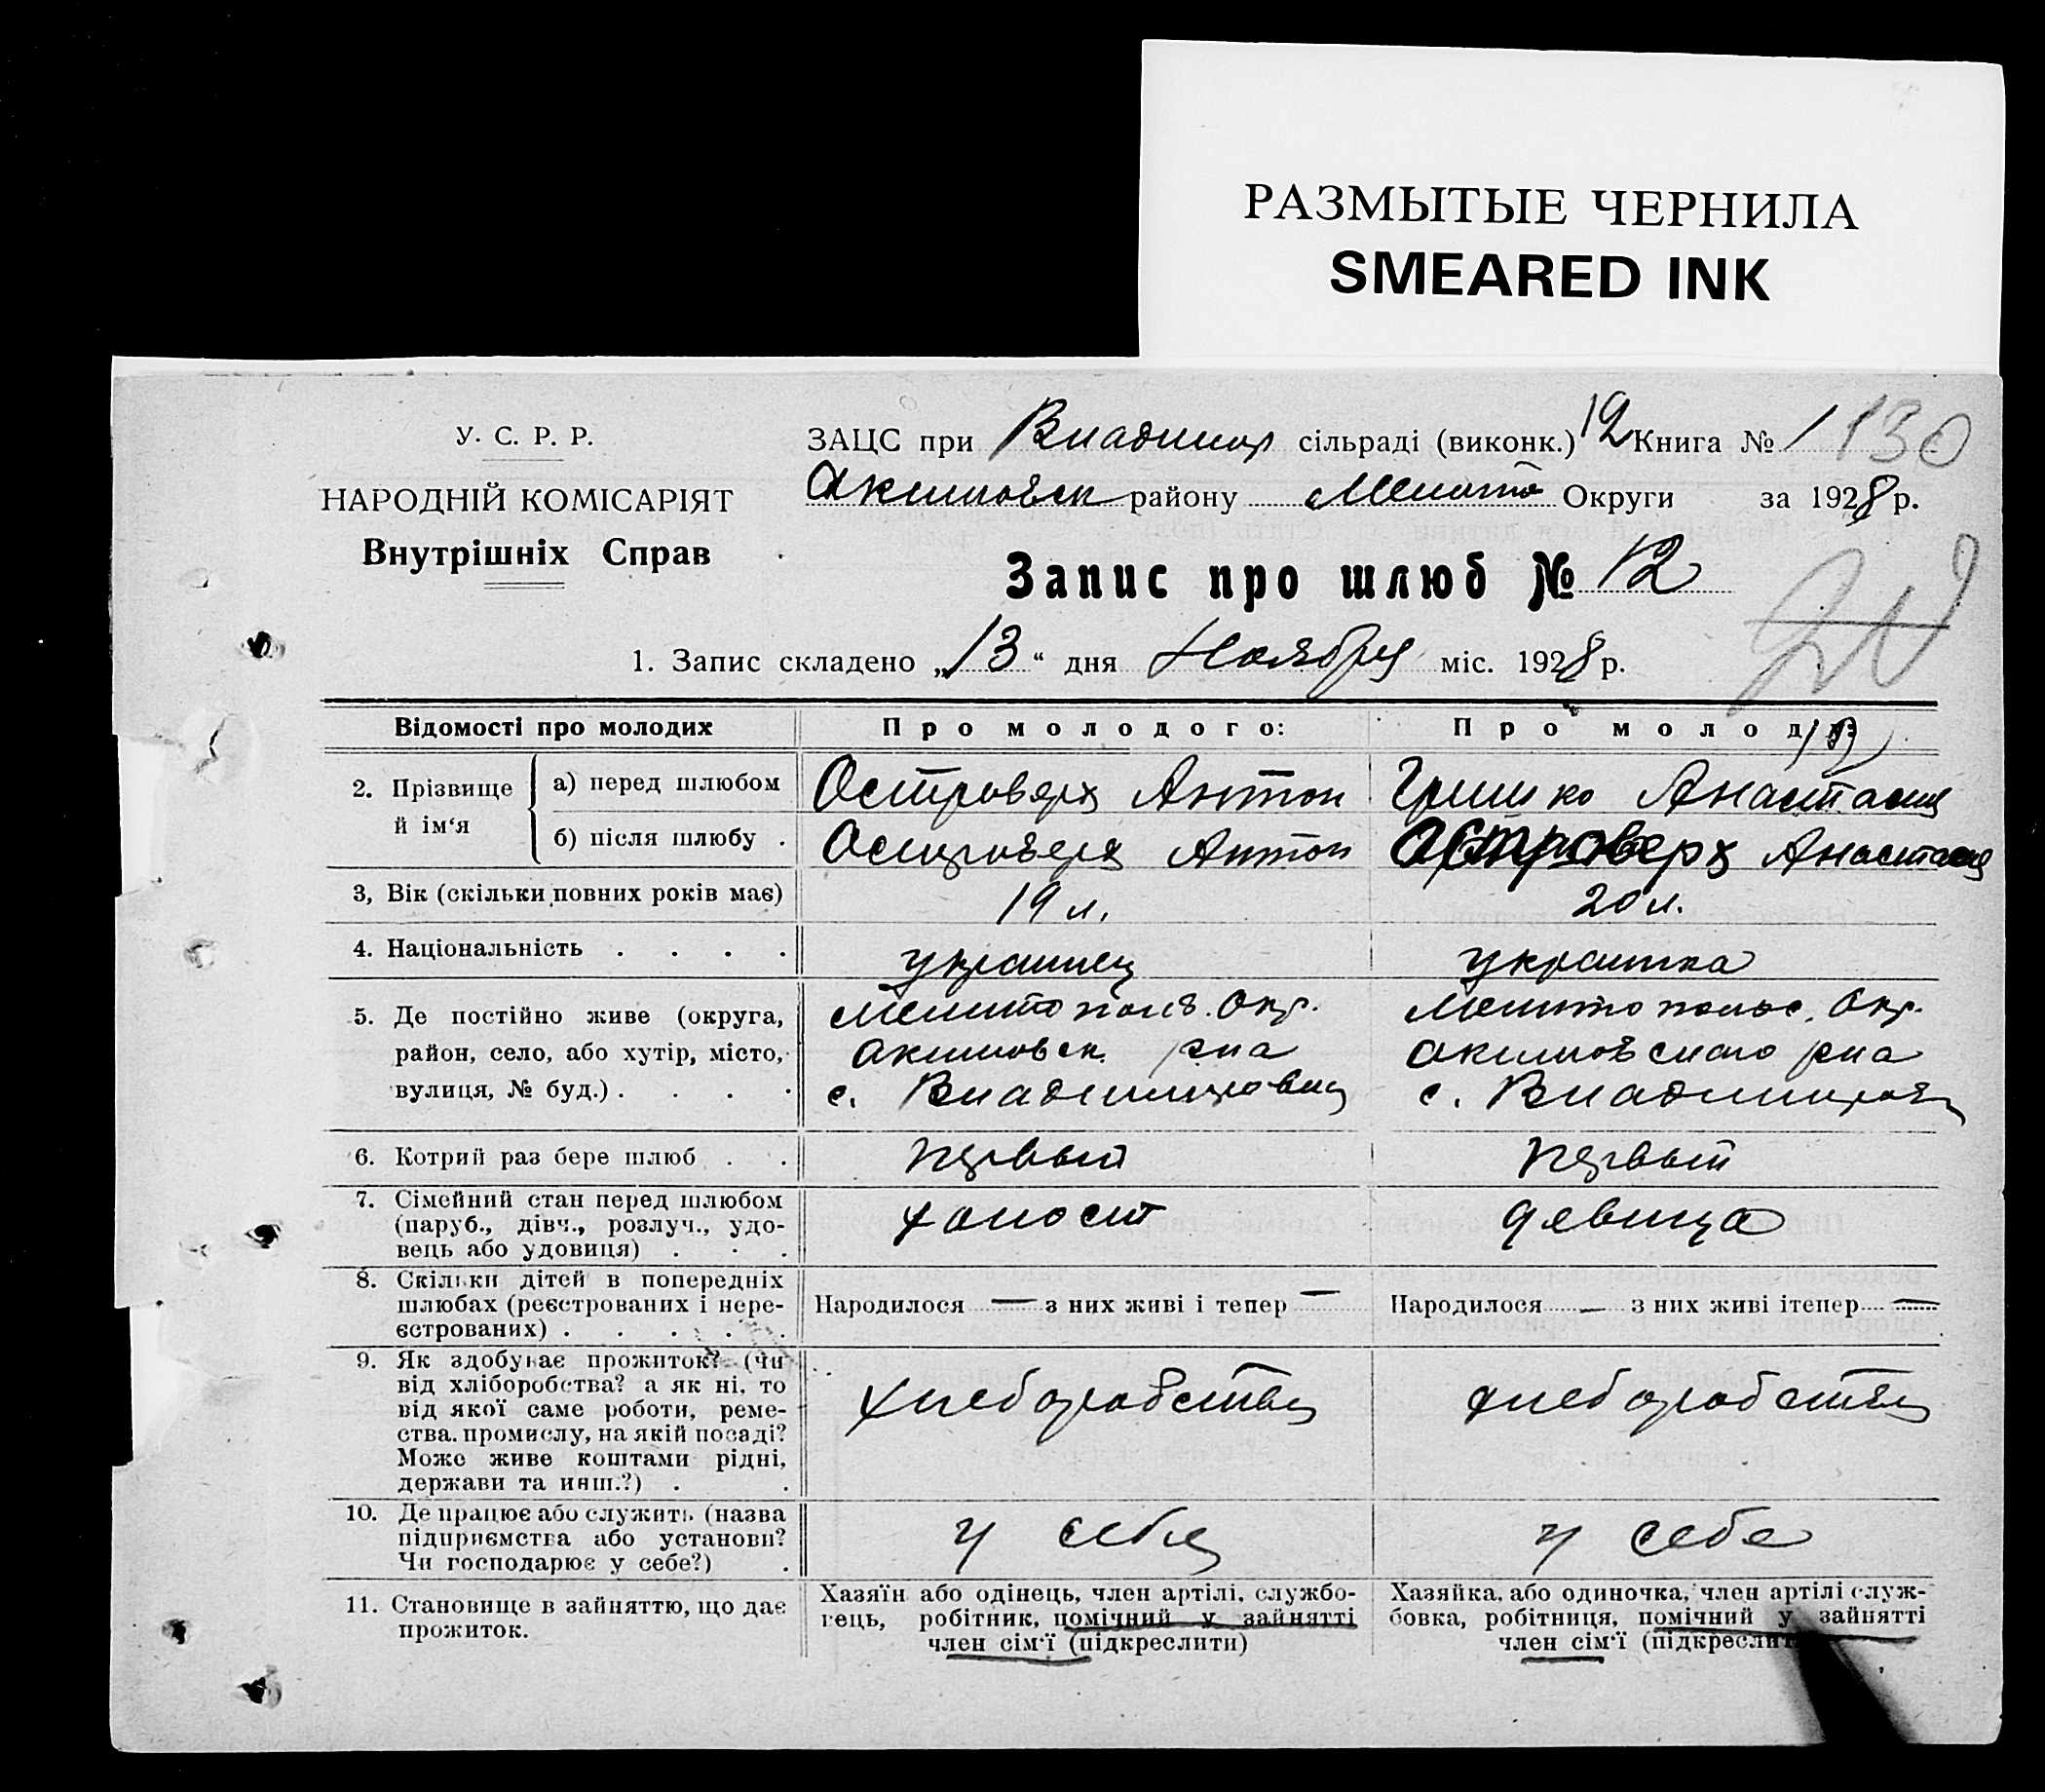 РАЗМЫТЫЕ ЧЕРНИЛА
SMEARED INK
У. С. Р. Р.
НАРОДНІЙ КОМІСАРІЯТ
Внутрішніх Справ
ЗАЦС при Владимир сільраді (виконк.) 12 Книга № 1 130
Акимовск району Мелито Округи за 1928 р.
Запис про шлюб № 12
1. Запис складено „13“ дня Ноября міс. 1928 р.
Відомості про молодих
Про молодого:
Про молоду:
2. Прізвище й ім‘я
а) перед шлюбом
Островерх Антон
Гришко Анастасия
б) після шлюбу .
Островерх Антон
Островерх Анастасия
3, Вік (скільки повних років має)
19 л.
20 л.
4. Національність . . . .
украинец
украинка
5. Де постійно живе (округа,
район, село, або хутір, місто,
вулиця, № буд.) . . . .
Мелитопол. Окр.
Акимовск. р-на
с. Владимировка
Мелитопольс. Окр.
Акимовского р-на
с. Владимировка
6. Котрий раз бере шлюб . .
первый
первый
7. Сімейний стан перед шлюбом
(паруб., дівч., розлуч., удо-
вець або удовиця) . . .
холост
девица
8. Скільки дітей в попередніх
шлюбах (реєстрованих і нере-
єстрованих) . . . . .
Народилося — з них живі і тепер —
Народилося — з них живі ітепер —
9. Як здобуває прожиток? (чи
від хліборобства? а як ні, то
від якої саме роботи, реме-
ства, промислу, на якій посаді?
Може живе коштами рідні,
держави та инш.?) . .
хлеборобство
хлеборобство
10. Де працює або служить (назва
підприємства або установи?
Чи господарює у себе?) .
у себе
у себе
11. Становище в зайняттю, що дає
прожиток.
Хазяїн або одінець, член артілі, службо-
вець, робітник, помічний у зайнятті
член сім‘ї (підкреслити)
Хазяйка, або одиночка, член артілі служ-
бовка, робітниця, помічний у зайнятті
член сім‘ї (підкресли